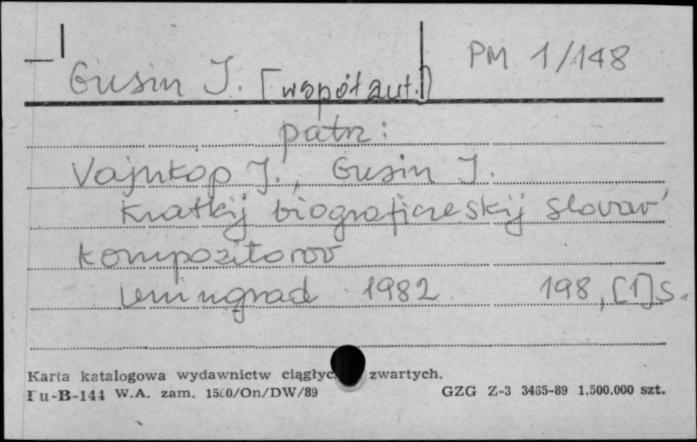 PM 1/148
Gusin J. [współaut.]
patrz:
Vajnkop J., Gusin J.
Kratkij biografičeskij slovar'
kompozitorov
Leningrad 1982 198, [1] s.
Karta katalogowa wydawnictw zwartych.
Pu-B-144 W.A. zam. 1560/On/DW/89 GZG Z-3 3465-89 1.500.000 szt.